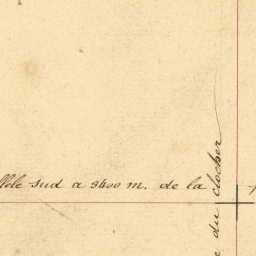 llèle sud a 3600 m. de la
du clocher